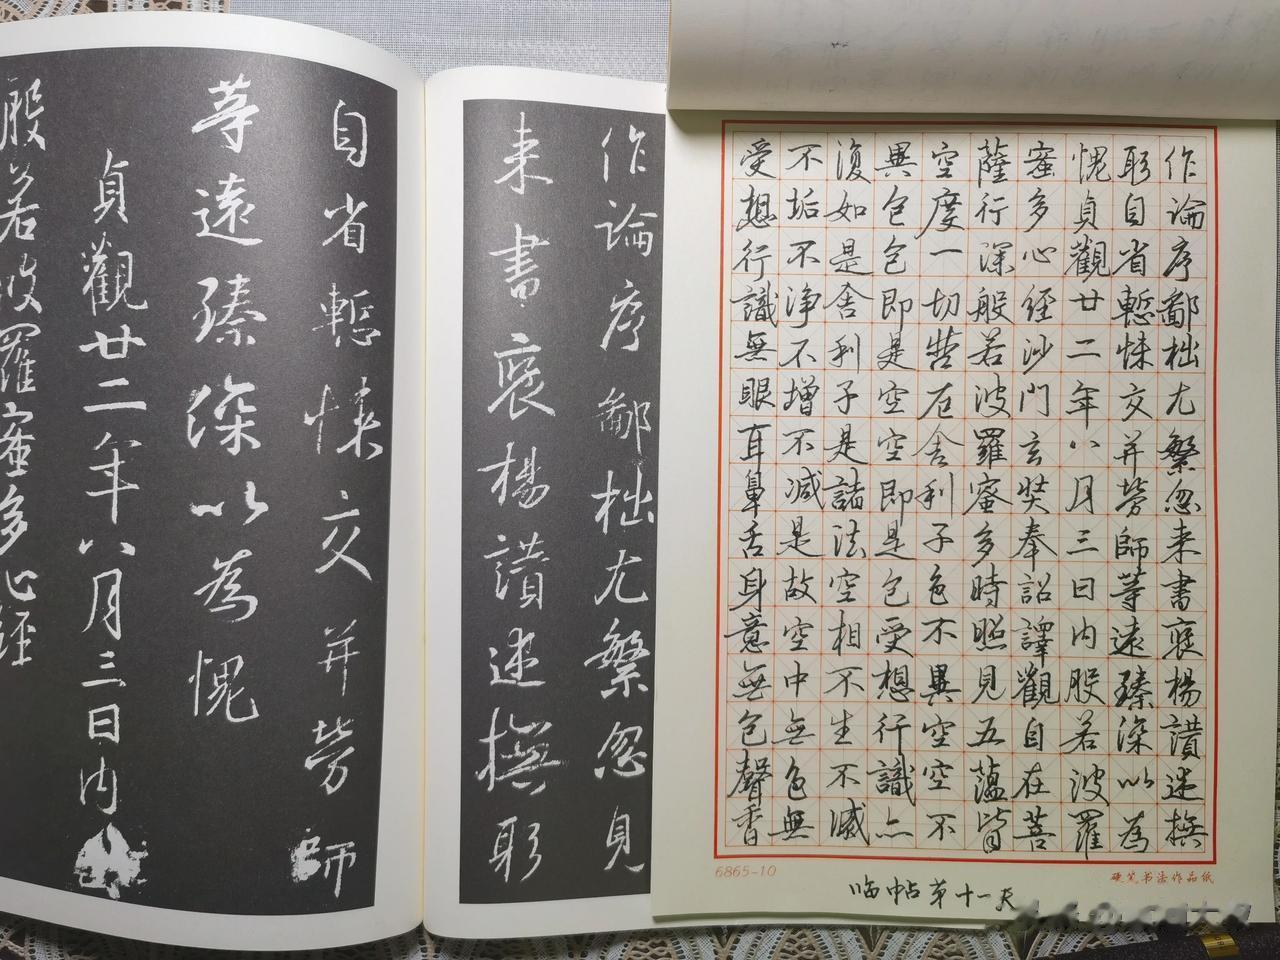 作論序鄙拙尤繁忽来書褒楊讃述撫
躬自省慙悚交并勞師等遠臻深以為
愧貞觀廿二年八月三日内般若波羅
蜜多心經沙門玄奘奉詔譯觀自在菩
薩行深般若波羅蜜多時照見五蘊皆
空度一切苦厄舍利子色不異空空不
異色色即是空空即是色受想行識亦
復如是舍利子是諸法空相不生不滅
不垢不淨不增不減是故空中無色無
受想行識無眼耳鼻舌身意無色聲香
6865-10
硬笔书法作品纸
临帖第十一天
作論序鄙拙尤繁忽見
来書褒楊讃述撫躬
自省慙悚交并勞師
等遠臻深以為愧
貞觀廿二年八月三日内
般若波羅蜜多心經